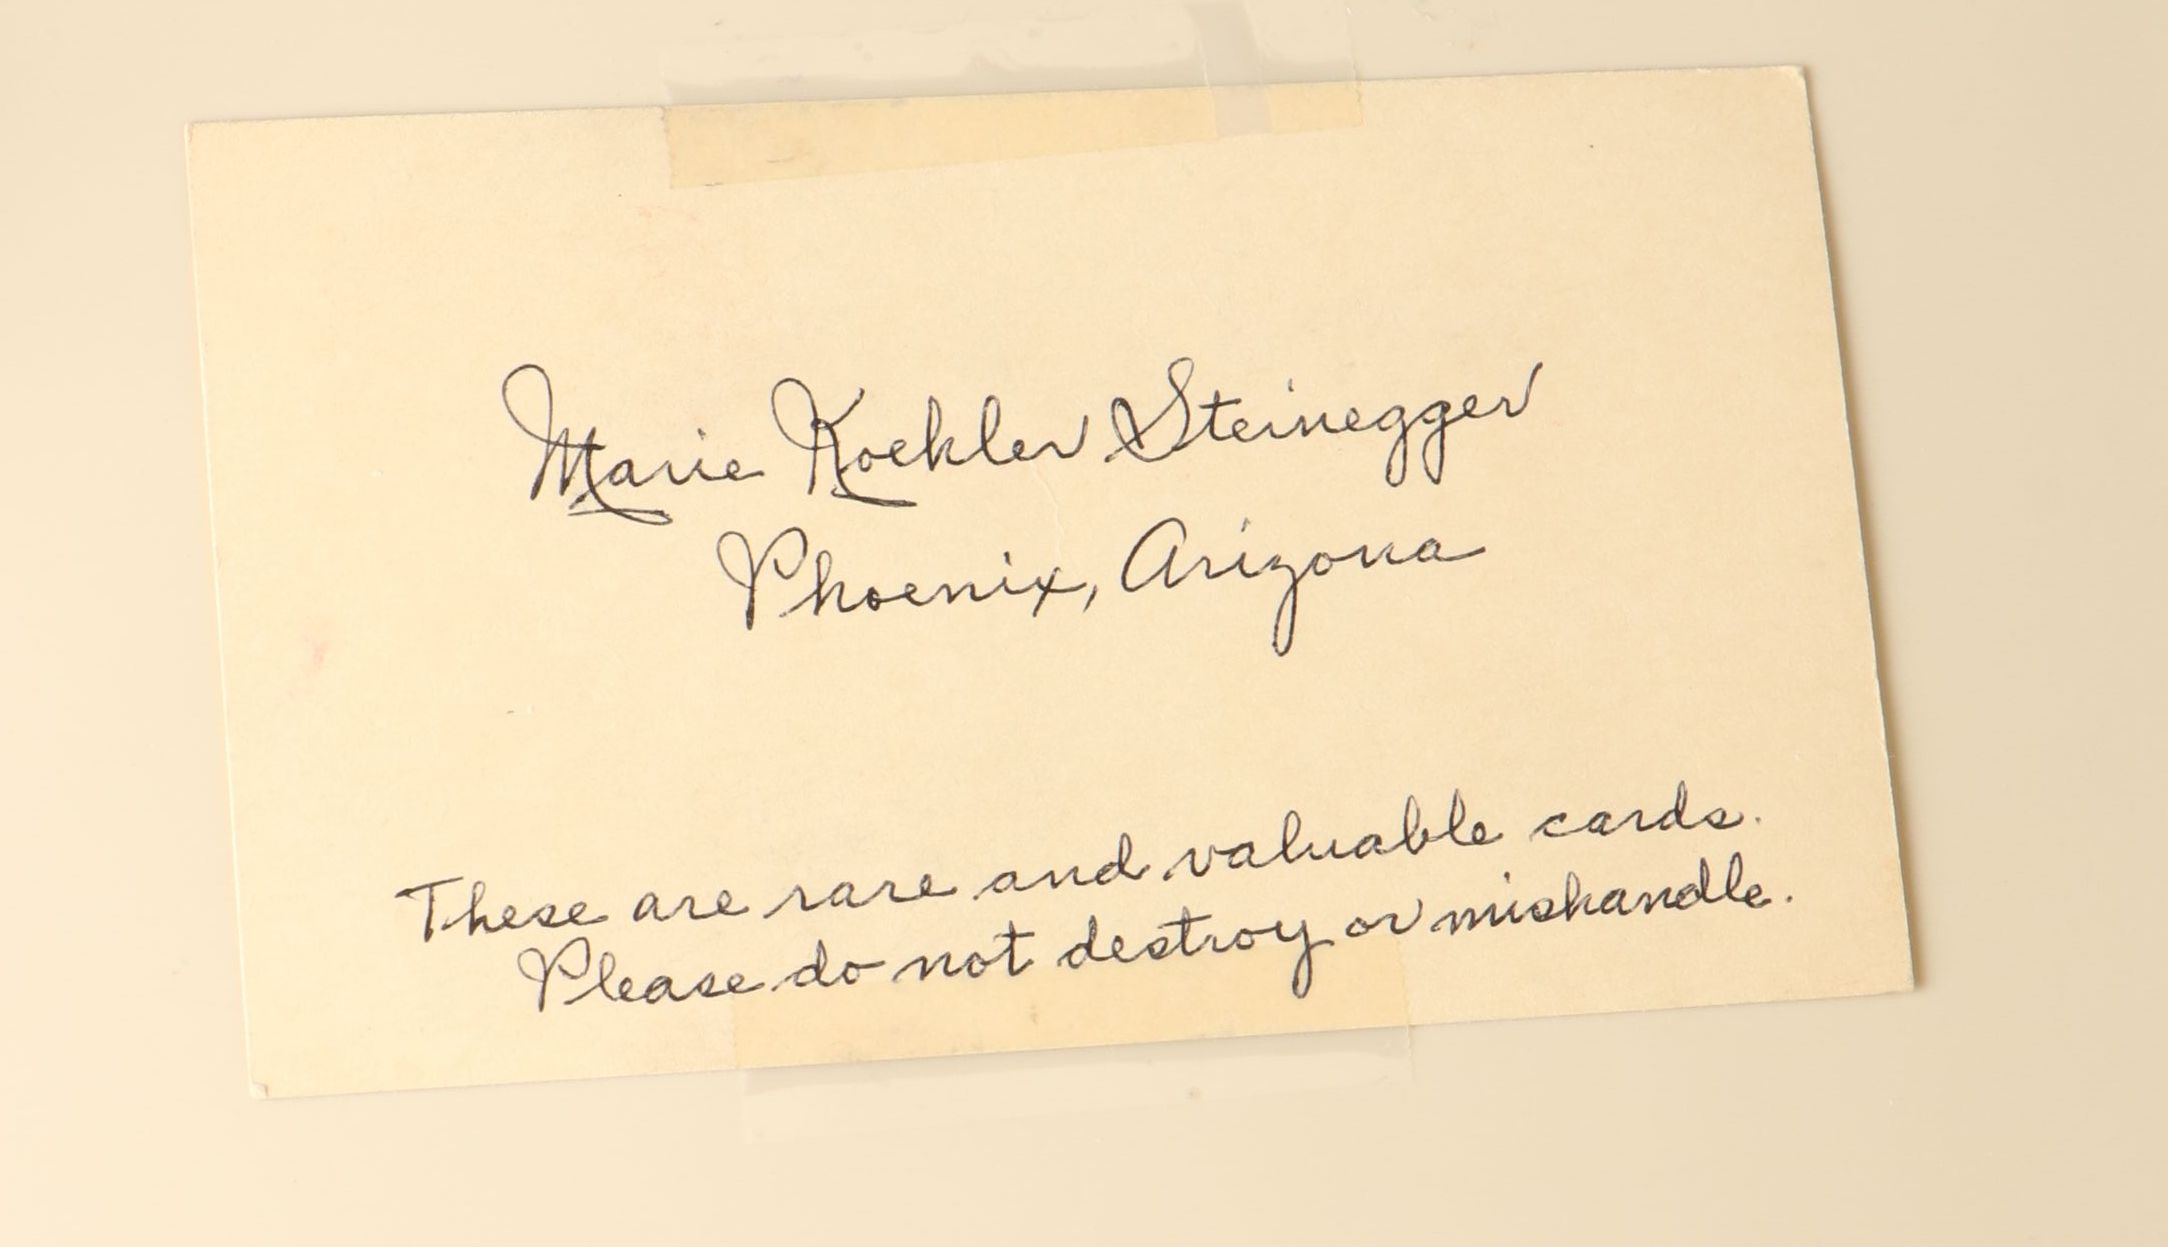 Marie Koehler Steinegger
Phoenix, Arizona
These are rare and valuable cards.
Please do not destroy or mishandle.